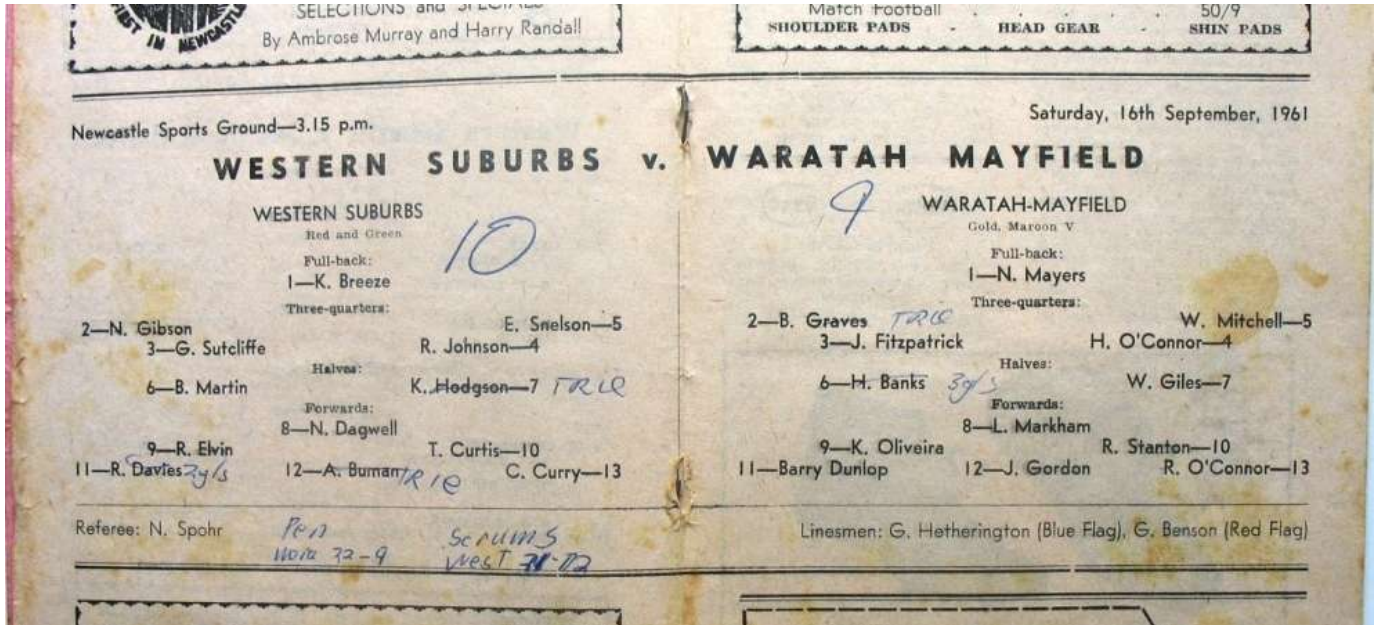 FIRST IN NEWCASTLE
SELECTIONS and
By Ambrose Murray and Harry Randall
Match Football . . . . 50/9
SHOULDER PADS - HEAD GEAR - SHIN PADS
Newcastle Sports Ground—3.15 p.m.
Saturday, 16th September, 1961
WESTERN SUBURBS v. WARATAH MAYFIELD
WESTERN SUBURBS
Red and Green
10
Full-back:
1—K. Breeze
Three-quarters:
2—N. Gibson E. Snelson—5
3—G. Sutcliffe R. Johnson—4
Halves:
6—B. Martin K. Hodgson—7 TRIE
Forwards:
8—N. Dagwell
9—R. Elvin T. Curtis—10
11—R. Davies 2g/s 12—A. Buman TRIE C. Curry—13
9
WARATAH-MAYFIELD
Gold, Maroon V
Full-back:
1—N. Mayers
Three-quarters:
2—B. Graves TRIE W. Mitchell—5
3—J. Fitzpatrick H. O'Connor—4
Halves:
6—H. Banks 3g/s W. Giles—7
Forwards:
8—L. Markham
9—K. Oliveira R. Stanton—10
11—Barry Dunlop 12—J. Gordon R. O'Connor—13
Referee: N. Spohr
Pen
Wara 22-9
Scrums
West
Linesmen: G. Hetherington (Blue Flag), G. Benson (Red Flag)